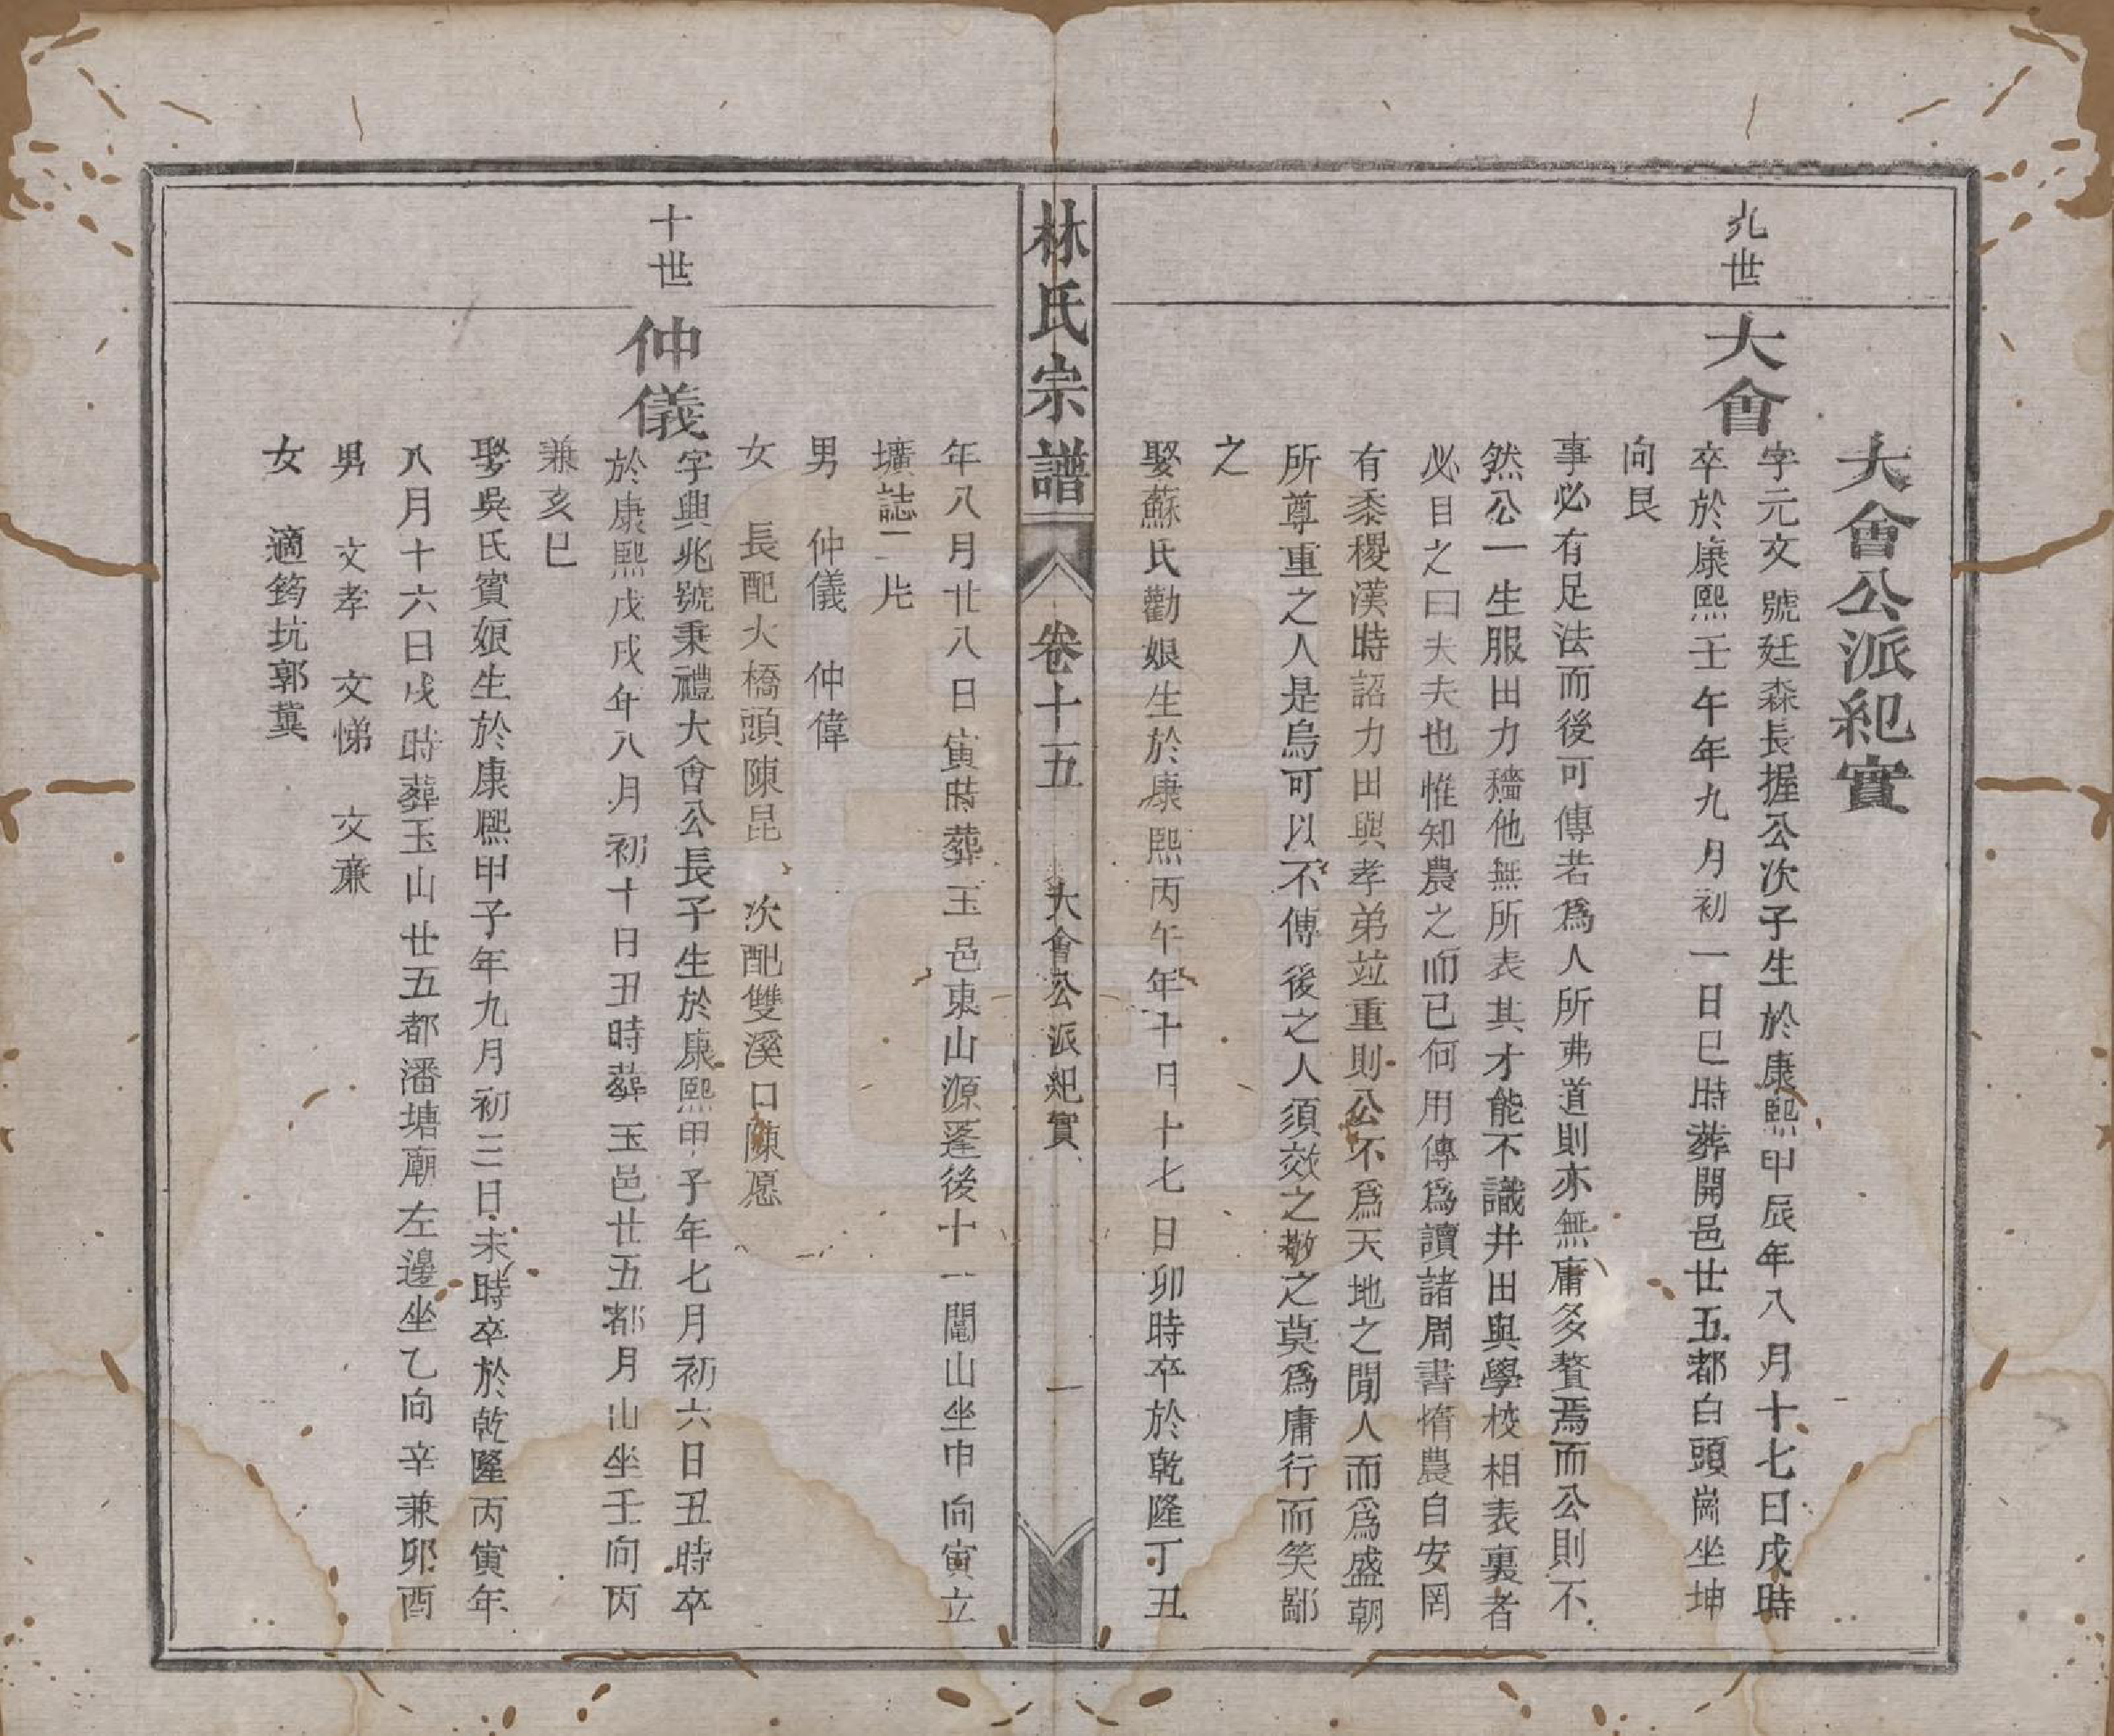 大會公派紀實
九世
大會
字元文號廷森長握公次子生於康熙甲辰年八月十七日戌時
卒於康熙壬午年九月初一日巳時葬開邑廿五都白頭崗坐坤
向艮
事必有足法而後可傳若爲人所弗道則亦無庸多贅焉而公則不
然公一生服田力穡他無所表其才能不識井田與學校相表裏者
必目之曰夫夫也惟知農之而已何用傳爲讀諸周書惰農自安罔
有黍稷漢時詔力田與孝弟竝重則公不爲天地之閒人而爲盛朝
所尊重之人是烏可以不傳後之人須效之敬之莫爲庸行而笑鄙
之
娶蘇氏勸娘生於康熙丙午年十月十七日卯時卒於乾隆丁丑
林氏宗譜 卷十五 大會公派紀實 一
年八月廿八日寅時葬玉邑東山源蓬後十一閣山坐申向寅立
壙誌一片
男 仲儀 仲偉
女 長配大橋頭陳昆 次配雙溪口陳愿
十世
仲儀
字興兆號秉禮大會公長子生於康熙甲子年七月初六日丑時卒
於康熙戊戌年八月初十日丑時葬玉邑廿五都月山坐壬向丙
兼亥巳
娶吳氏賓娘生於康熙甲子年九月初三日未時卒於乾隆丙寅年
八月十六日戌時葬玉山廿五都潘塘廟左邊坐乙向辛兼卯酉
男 文孝 文悌 文亷
女 適筠坑郭冀